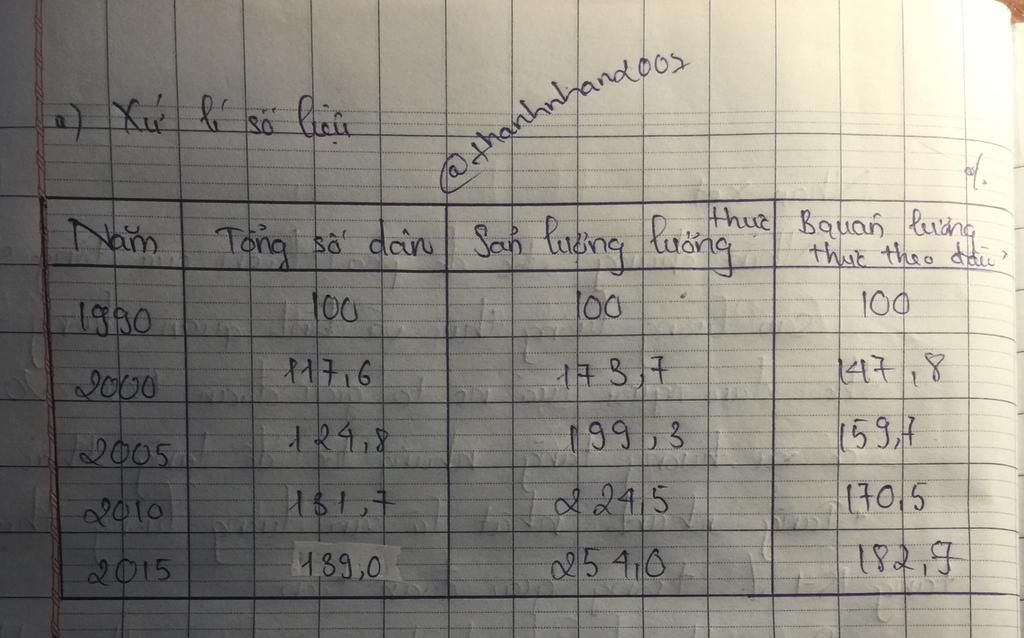 a) Xử lí số liệu
@thanhnhand002
%
Năm Tổng số dân Sản lượng lương thực Bquân lương
thực theo đầu'
1990 100 100 100
2000 117,6 173,7 147,8
2005 124,8 199,3 159,7
2010 131,7 224,5 170,5
2015 139,0 254,0 182,7